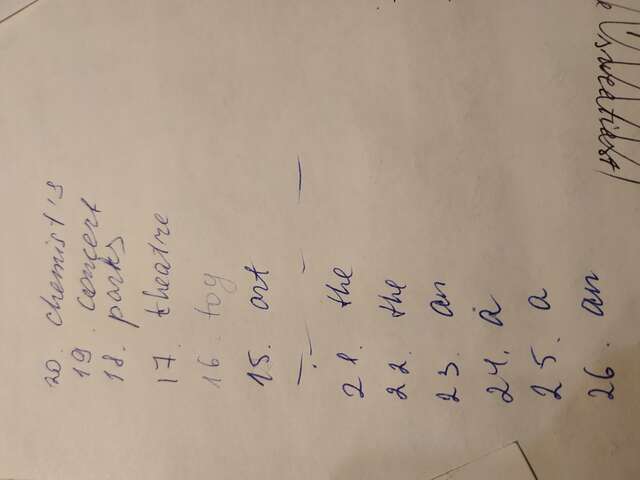 20. chemist's
19. concert
18. parks
17. theatre
16. toy
15. art
21. the
22. the
23. an
24. a
25. a
26. an